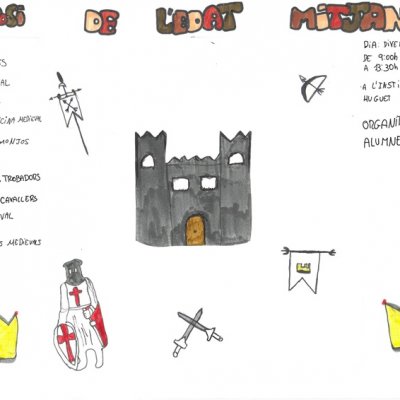 OSI DE L'EDAT MITJAN
ES
AL
CINA MEDIEVAL
MONJOS
TROBADORS
CAVALLERS
VAL
S MEDIEVALS
DIA: DIVE
DE 9:00h
A 13:30h
A L'INSTI
HUGUET
ORGANIT
ALUMNE